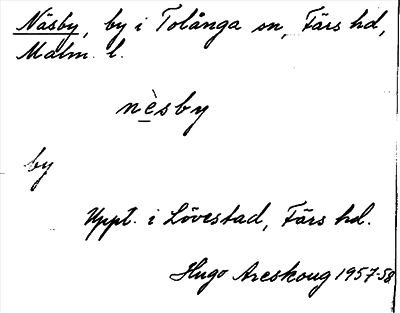 Näsby, by i Tolånga sn, Färs hd,
Malm. l.
nèsby
by
Uppt. i Lövestad, Färs hd.
Hugo Areskoug 1957-58